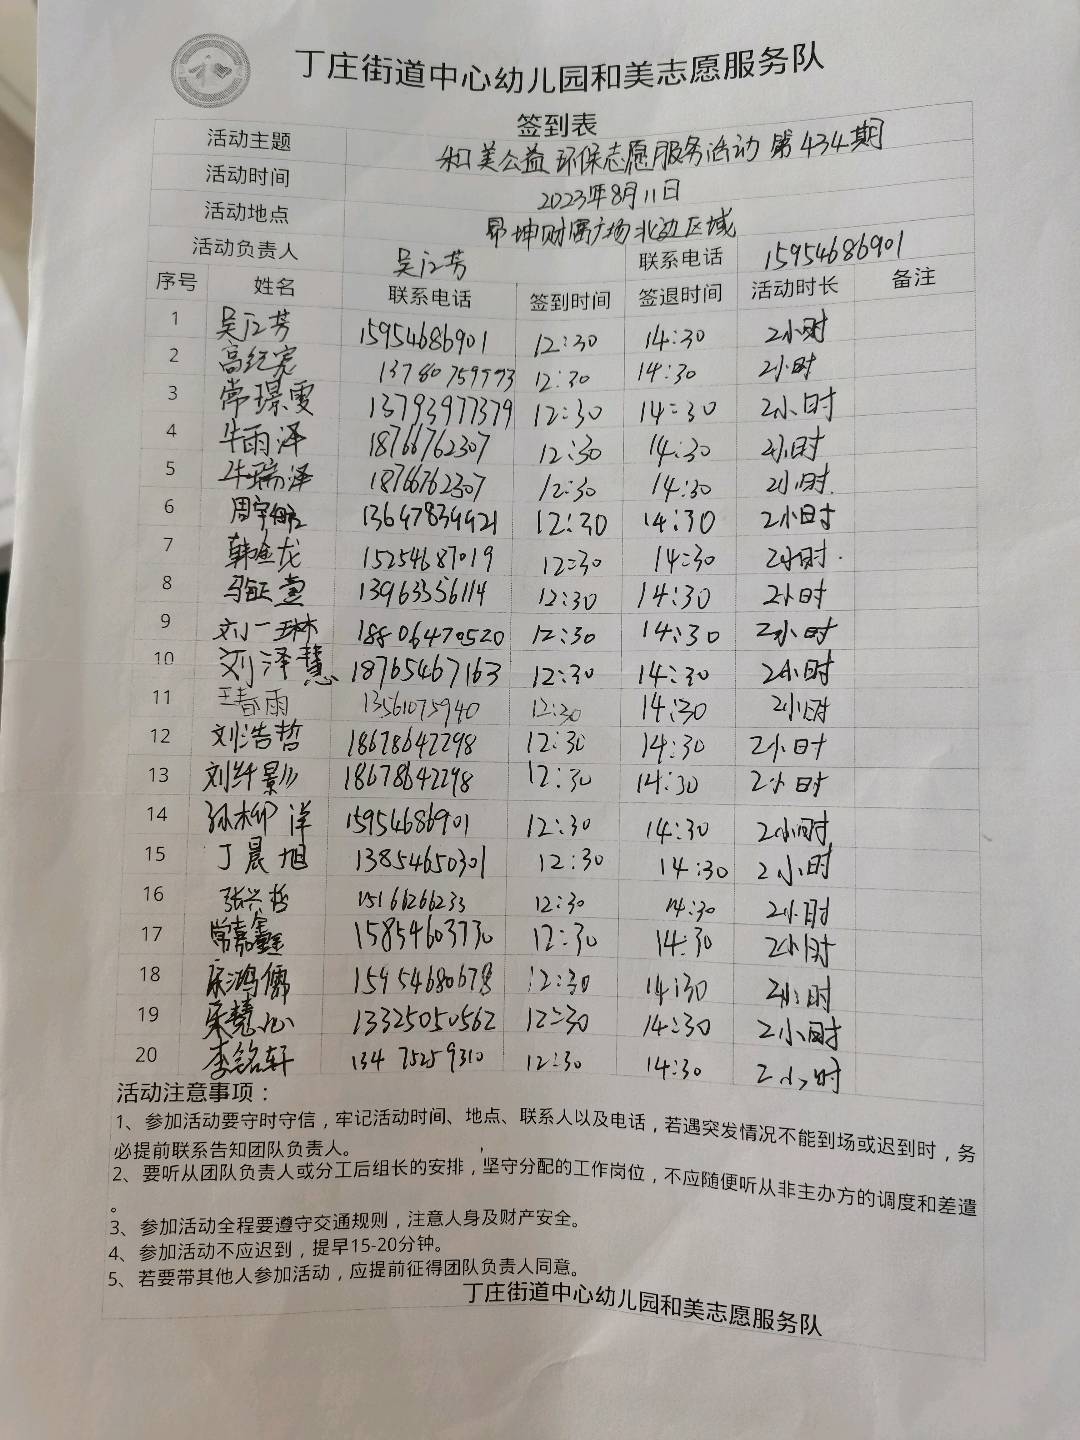 丁庄街道中心幼儿园和美志愿服务队
签到表
活动主题 和美公益环保志愿服务活动第434期
活动时间 2023年8月11日
活动地点 昂坤财富广场北边区域
活动负责人 吴江芳 联系电话 15954686901
序号 姓名 联系电话 签到时间 签退时间 活动时长 备注
1 吴江芳 15954686901 12:30 14:30 2小时
2 高纪宪 12:30 14:30 2小时
3 常璟雯 13793977379 12:30 14:30 2小时
4 牛雨泽 18766762307 12:30 14:30 2小时
5 牛瑞泽 18766762307 12:30 14:30 2小时.
6 周宇航 13647834421 12:30 14:30 2小时
7 韩金龙 15254687019 12:30 14:30 2小时.
8 13963356114 12:30 14:30 2小时
9 刘一琳 18806470520 12:30 14:30 2小时
10 刘泽慧 18765467163 12:30 14:30 2小时
11 王春雨 13561075940 12:30 14:30 2小时
12 刘浩哲 18678642298 12:30 14:30 2小时
13 刘纤影 18678642298 12:30 14:30 2小时
14 孙柳洋 15954686901 12:30 14:30 2小时
15 丁晨旭 13854650301 12:30 14:30 2小时
16 张兴哲 15166266233 12:30 14:30 2小时
17 常嘉鑫 15854603730 12:30 14:30 2小时
18 鸿儒 15954680678 12:30 14:30 2小时
19 宋慧心 13325050562 12:30 14:30 2小时
20 李铭轩 13475259310 12:30 14:30 2小时
活动注意事项：
1、参加活动要守时守信，牢记活动时间、地点、联系人以及电话，若遇突发情况不能到场或迟到时，务
必提前联系告知团队负责人。
2、要听从团队负责人或分工后组长的安排，坚守分配的工作岗位，不应随便听从非主办方的调度和差遣
。
3、参加活动全程要遵守交通规则，注意人身及财产安全。
4、参加活动不应迟到，提早15-20分钟。
5、若要带其他人参加活动，应提前征得团队负责人同意。
丁庄街道中心幼儿园和美志愿服务队